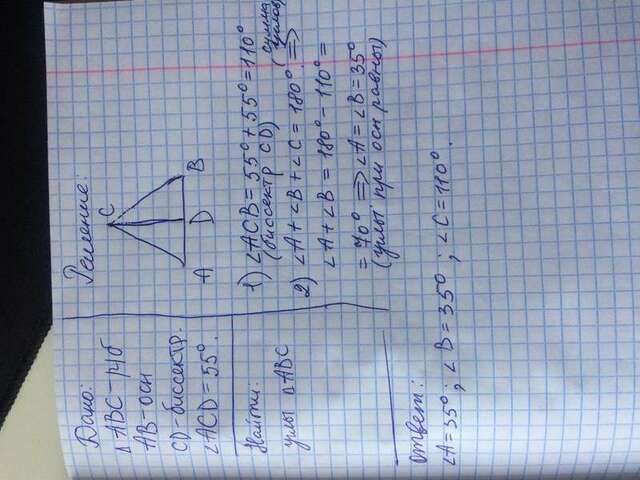 Дано:
△ABC – р/б
AB – осн
CD – биссектр.
∠ACD = 55°.
Найти:
углы △ABC
Решение:
C
A D B
1) ∠ACB = 55° + 55° = 110°
(биссектр CD)
(сумма углов)
2) ∠A + ∠B + ∠C = 180° ⟹
∠A + ∠B = 180° – 110° =
= 70° ⟹ ∠A = ∠B = 35°
(углы при осн равны)
Ответ:
∠A = 35°; ∠B = 35°; ∠C = 110°.